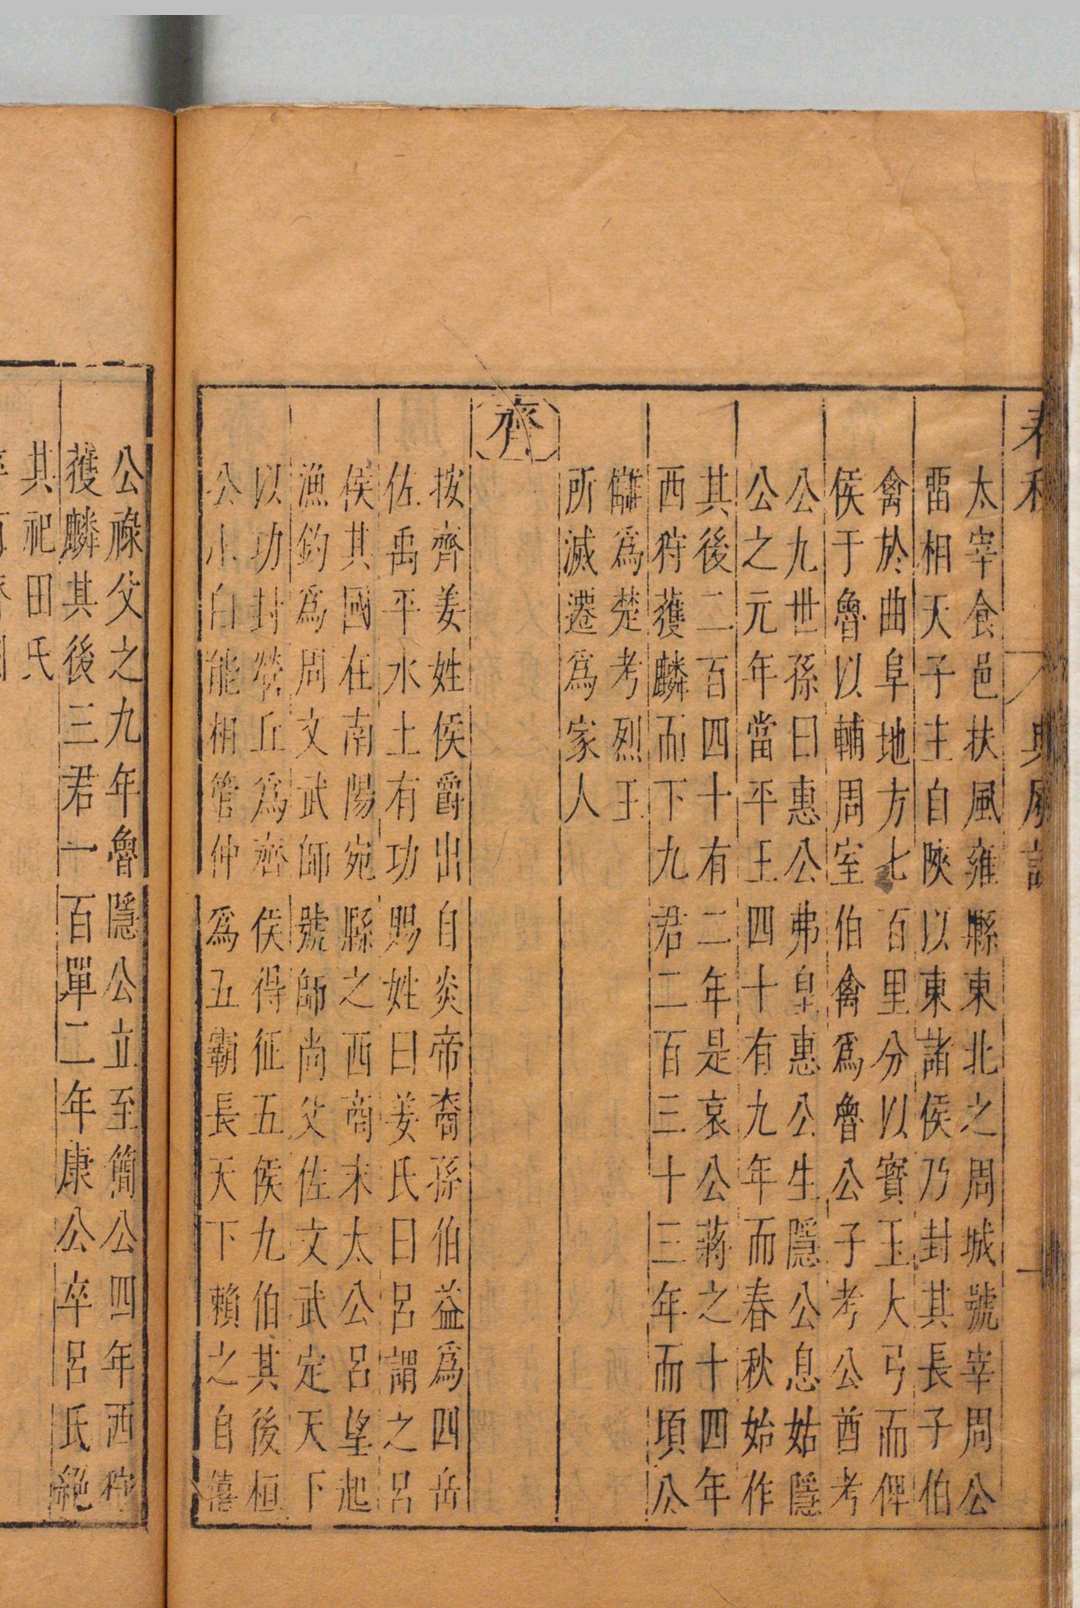 太宰食邑扶風雍縣東北之周城號宰周公
畱相天子主自陝以東諸侯乃封其長子伯
禽於曲阜地方七百里分以寶玉大弓而俾
侯于魯以輔周室伯禽爲魯公子考公酋考
公九世孫曰惠公弗皇惠公生隱公息姑隱
公之元年當平王四十有九年而春秋始作
其後二百四十有二年是哀公蔣之十四年
西狩獲麟而下九君二百三十三年而頃公
讎爲楚考烈王
所滅遷爲家人
齊
按齊姜姓侯爵出自炎帝裔孫伯益爲四岳
佐禹平水土有功賜姓曰姜氏曰呂謂之呂
侯其國在南陽宛縣之西商末太公呂望起
漁釣爲周文武師號師尚父佐文武定天下
以功封營丘爲齊侯得征五侯九伯其後桓
公小白能相管仲爲五霸長天下賴之自僖
公祿父之九年魯隱公立至簡公四年西狩
獲麟其後三君一百單二年康公卒呂氏絕
其祀田氏